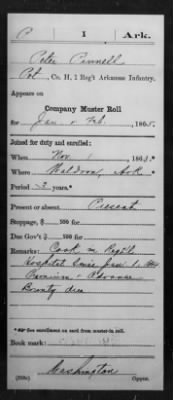 C 1 Ark.
Peter Connell
Pvt, Co. H, 1 Reg't Arkansas Infantry.
Appears on
Company Muster Roll
for Jan & Feb, 1865.
Joined for duty and enrolled:
When Nov 1, 186
Where Waldron, Ark
Period 3 years.*
Present or absent Present
Stoppage, $ 100 for
Due Gov't $ 100 for
Remarks: Cook in Regtl
Hospital since Jan 1,
Premium & Advance
Bounty due
*See enrollment on card from muster-in roll.
Book mark:
Washington
(358c) Copyist.